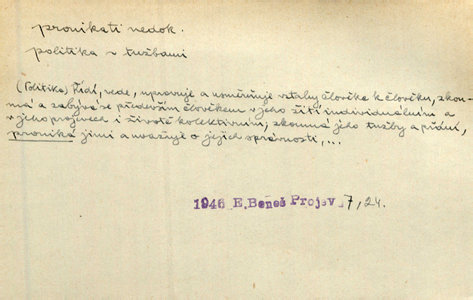 pronikati nedok.
politika v tužbami
(Politika) Řídí, vede, upravuje a usměrňuje vztahy člověka k člověku, zkou-
má a zabývá se především člověkem v jeho žití individuálním a
v jeho projevech i životě kolektivním; zkoumá jeho tužby a přání,
proniká jimi a uvažuje o jejich správnosti,...
1946 E.Beneš Projev 7, 24.